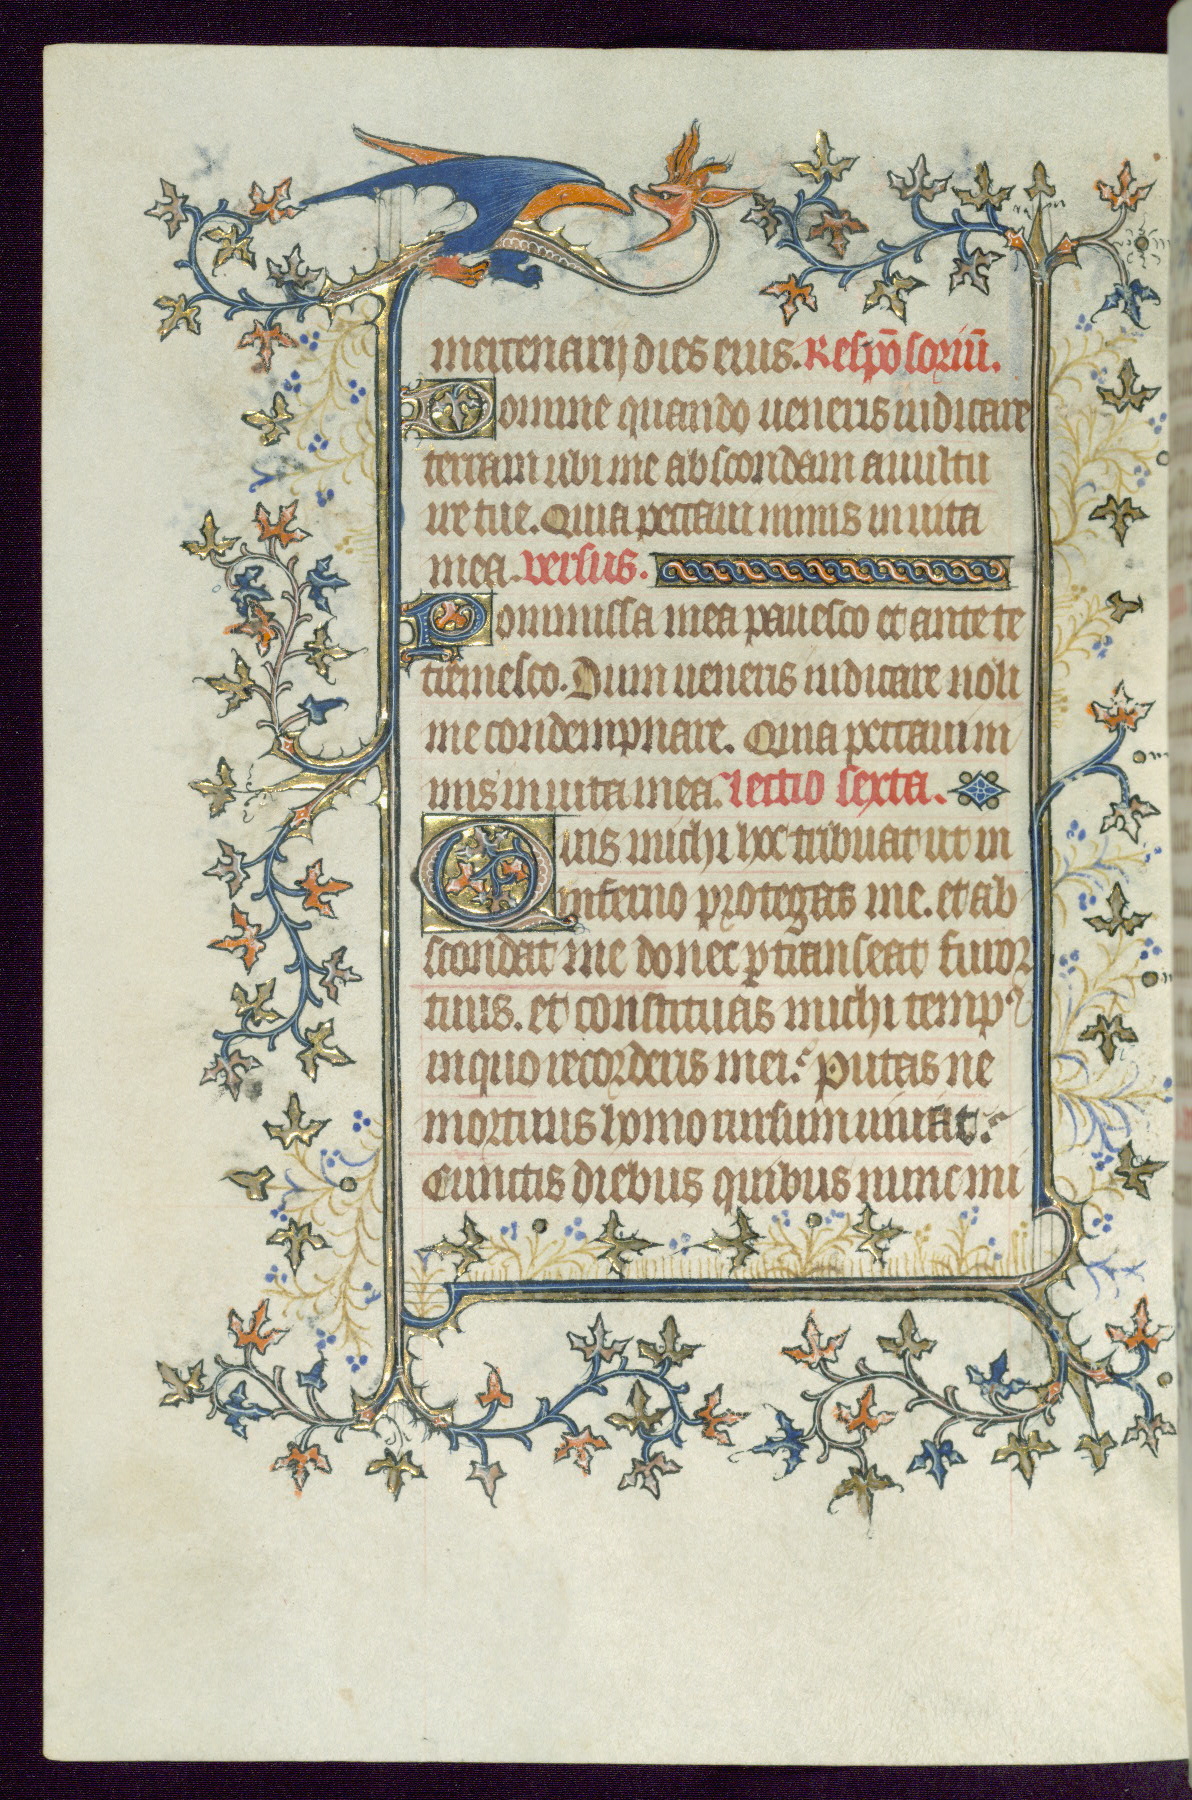 mercenarij dies eius. Respōsoriū.
Domine quando ueneris iudicare
terram ubi me abscondam a uultu
ire tue. Quia peccaui nimis in uita
mea. versus.
Commissa mea pauesco et ante te
timesco. Dum ueneris iudicare noli
me condempnare. Quia peccaui ni
mis in uita mea. lectio sexta.
Quis michi hoc tribuat ut in
inferno protegas me. et ab
scondas me donec ꝑtranseat furor
tuus. et constituas michi tempꝰ
in quo recorderis mei. Putas ne
mortuus homo rursum uiuat.
Cunctis diebus quibus nunc mi